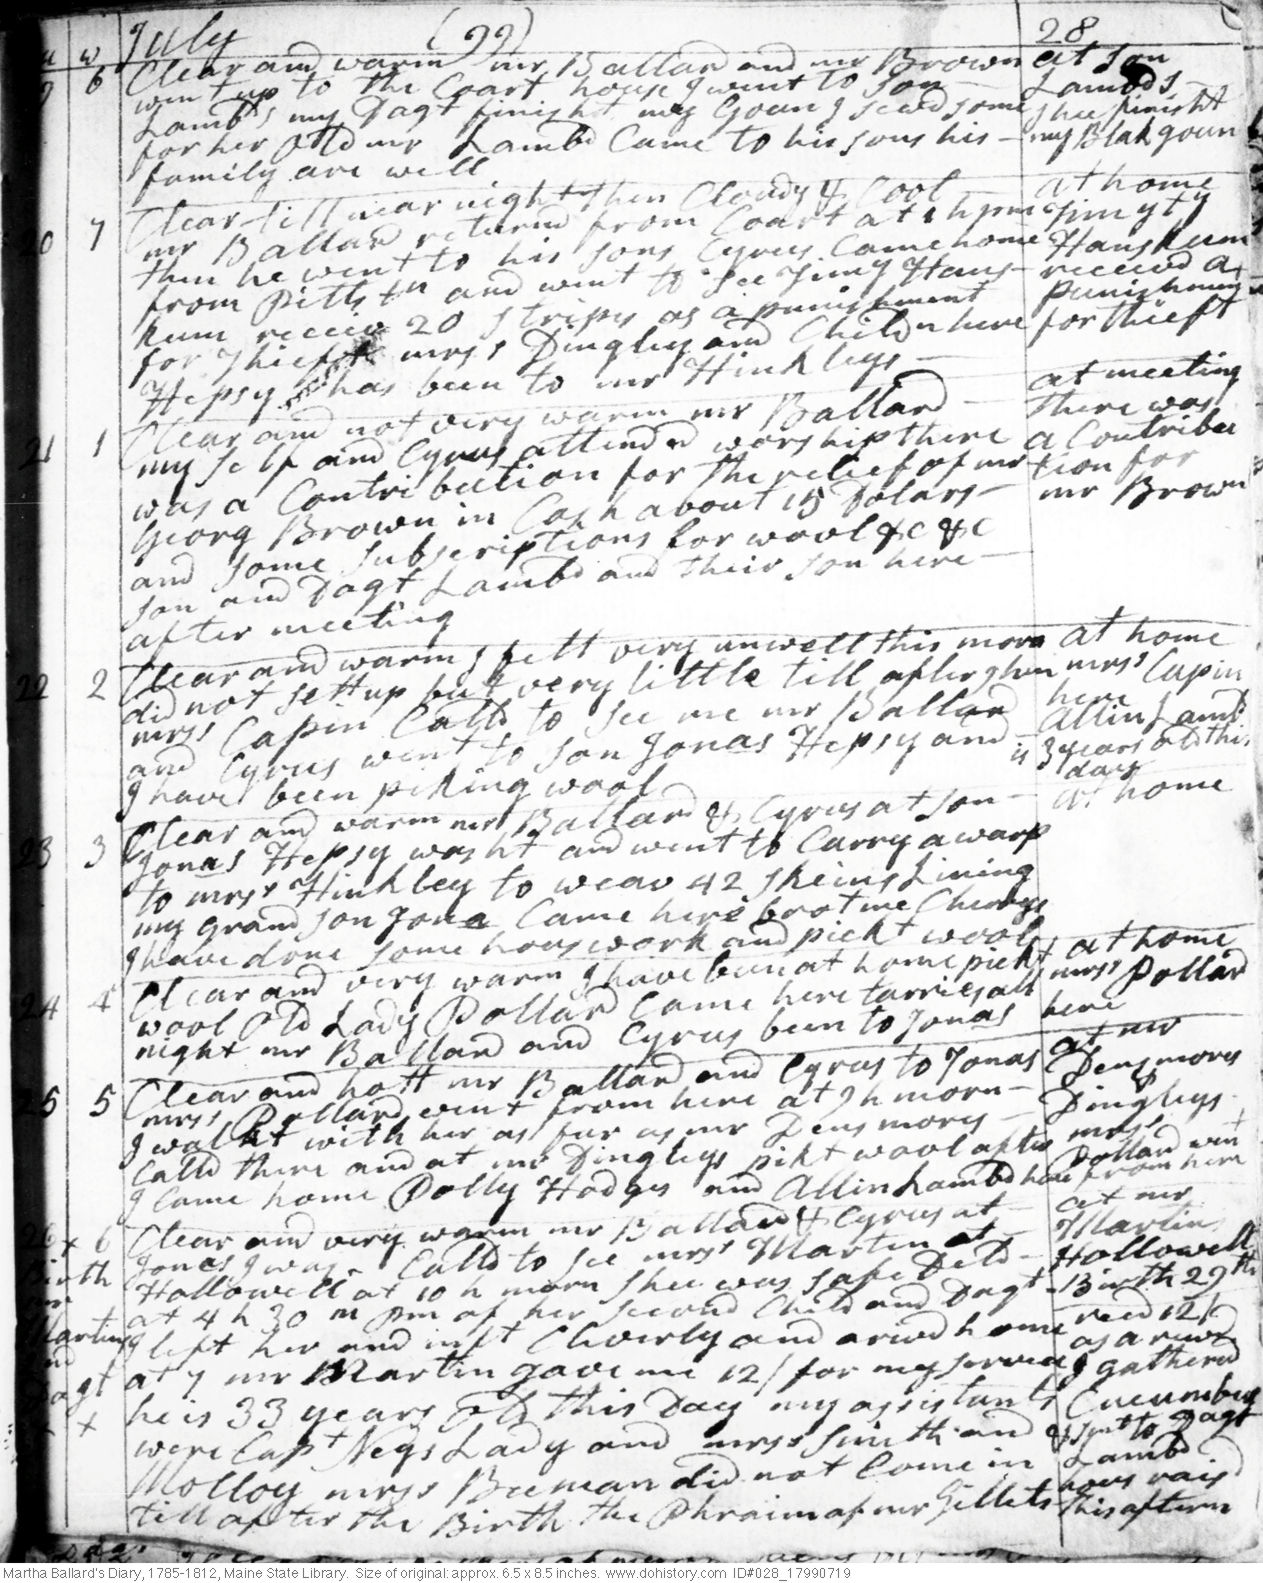 July (99) 28
w
6 Clear and warm mr Ballard and mr Brown at son
went up to the Coart house I went to son Lambds
Lambds my Dagt finisht my Goun I sewd some shee finisht
for her Old mr Lambd Came to his sons his – my Blak goun
family are well
20 7 Clear till near night then Clowdy & Cool at home
mr Ballard returnd from Coart at 1 h pm Jimy ty
then he went to his sons Cyrus Came home Hanskum
from Pittstn and went to see Jimy Hans– received a
kum receiv 20 Strips as a punishment punishment
for Thieft mrss Dingley and Child n here for thieft
Hepsy has been to mr Hinkleys –
21 1 Clear and not very warm mr Ballard – at meeting
my self and Cyrus attended worship there there was
was a Contribution for the relief of mr a Contribu
Georg Brown in Cash about 15 Dolars – tion for
and some subscriptions for wool &c &c mr Brown
son and Dagt Lambd and their son here –
after meeting
22 2 Clear and warm I felt very unwell this morn at home
did not sett up but very little till afterghun mrss Capin
mrss Capin Calld to see me mr Ballard here
and Cyrus went to son Jonas Hepsy and Allin Lambd
I have been picking wool is 3 years old this
day
23 3 Clear and warm mr Ballard & Cyrus at son – at home
Jonas Hepsy washt and went to Carry a warp
to mrss Hinkley to weav 42 skeins Lining
my grand son Jona Came here brot me Cherrys
I have done some hous work and pickt wool
24 4 Clear and very warm I have been at home pickt at home
wool Old Lady Pollard Came here tarries all mrss Pollard
night mr Ballard and Cyrus been to Jonas here
25 5 Clear and hott mr Ballard and Cyrus to Jonas at mr
mrss Pollard went from here at 9 h morn – Densmores
I walkt with her as far as mr Densmores – Dingleys
Calld there and at mr Dingleys pikt wool after mrss
I came home Polly Hodges and Allin Lambd here Pollard went
from here
26 x 6 Clear and very warm mr Ballard & Cyrus at – at mr
Jonas I was Calld to see mrss Martin at – Martins
Birth Hallowell at 10 h morn Shee was safe Deld – Hollowell
mr at 4 h 30 m pm of her second Child and Dagt – Birth 29th
Martins I left her and inft Cleverly and arivd home recd 12/
2nd at 7 mr Martin gave me 12/ for my service as a rewd
Dagt he is 33 years old this Day my assistants I gathered
x were Capt Neys Lady and mrss Smith and Cucumbers
Molloy mrss Beeman did not Come in & sent to Dagt
till after the Birth the Phraim of mr Gillets Lambd
hous raisd
this aftern
Martha Ballard's Diary, 1785-1812, Maine State Library. Size of original: approx. 6.5 x 8.5 inches. www.dohistory.com ID#028_17990719